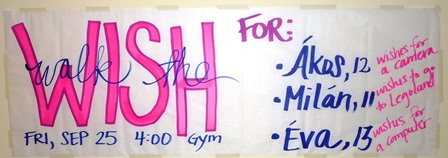 walk the
WISH
FRI, SEP 25 4:00 Gym
FOR:
• Ákos, 12 wishes for a camera
• Milán, 11 wishes to go to Legoland
• Éva, 13 wishes for a computer